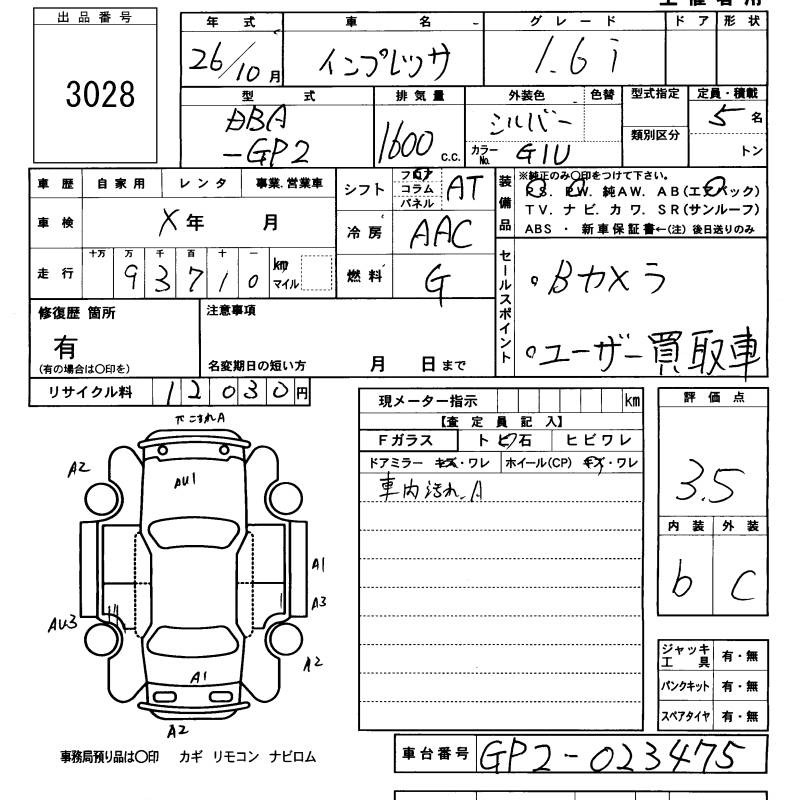 出品番号
3028
年式 車名 グレード ドア 形状
26/10月 インプレッサ 1.6i
型式 排気量 外装色 色替 型式指定 定員・積載
DBA
-GP2
1600 c.c.
シルバー
カラーNo. G1U
類別区分
5名
トン
車歴 自家用 レンタ 事業.営業車
車検 X年 月
走行 十万 万 千 百 十 一
93710 km マイル
シフト フロア コラム パネル AT
冷房 AAC
燃料 G
装備品
※純正のみ〇印をつけて下さい。
P.S. P.W. 純AW. AB(エアバック)
TV. ナビ. カワ. SR(サンルーフ)
ABS ・ 新車保証書←(注) 後日送りのみ
セールスポイント
。Bカメラ
。ユーザー買取車
修復歴 箇所
有
(有の場合は〇印を)
注意事項
名変期日の短い方 月 日まで
リサイクル料 12030円
現メーター指示 km
【査定員記入】
Fガラス トビ石 ヒビワレ
ドアミラー キズ・ワレ ホイール(CP) キズ・ワレ
車内汚れ.A
評価点
3.5
内装 外装
b C
下こすれA
A2
AU1
A1
A3
AU3
A2
A1
A2
ジャッキ工具 有・無
パンクキット 有・無
スペアタイヤ 有・無
事務局預り品は〇印 カギ リモコン ナビロム
車台番号 GP2-023475